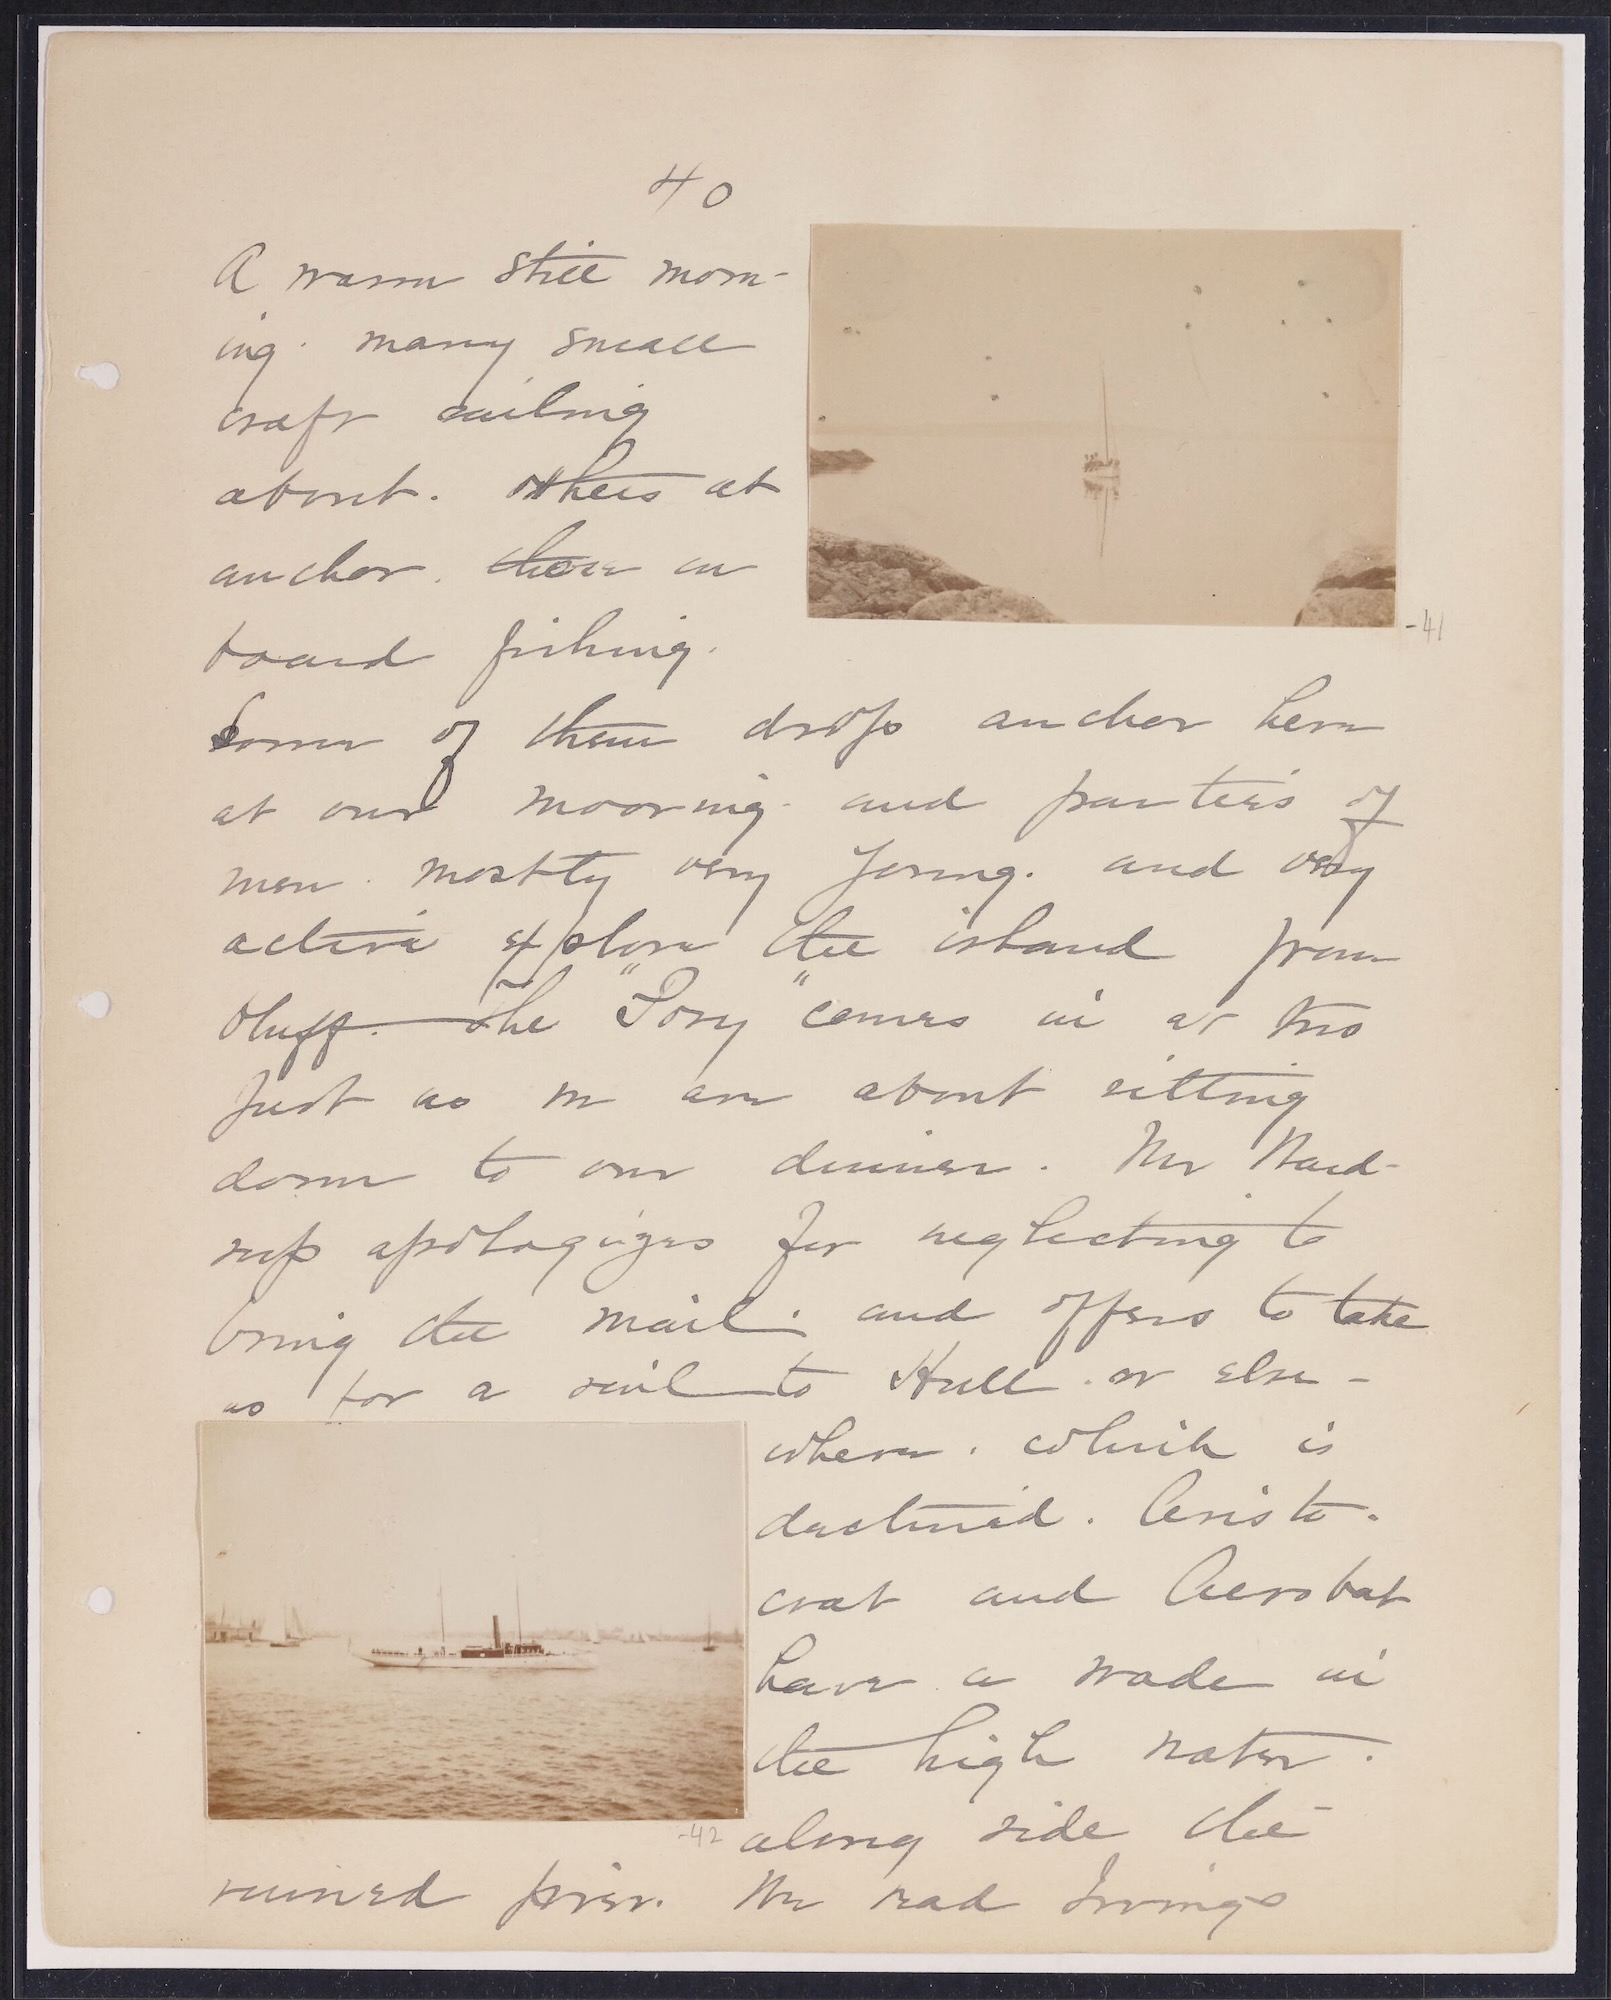 40
A warm still morn-
ing. many small
craft sailing
about. others at
anchor. those on
board fishing.
Some of them drop anchor here
at our mooring. and parties of
men. mostly very young. and very
active explore the island from
bluff. The "Posy" comes in at two
just as we are about sitting
down to our dinner. Mr Ward-
rop apologizes for neglecting to
bring the mail. and offers to take
us for a sail to Hull. or else-
where. which is
declined. Aristo-
crat and Acrobat
have a wade in
the high water.
along side the
ruined pier. We read Irvings
-41
-42